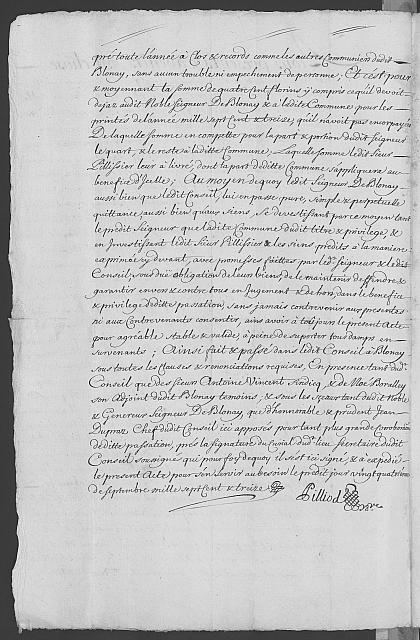 pré toute l'année à Clos & records comme les autres Communiers dudit
Blonay, sans aucun trouble ni empechement de personne; Et c'est pour
& moyennant la somme de quatre Cent florins y compris ce qu'il devoit
deja audit Noble Seigneur De Blonay & à ladite Commune pour les
printés de l'année mille sept Cent & treize, qu'il n'avoit pas encor payé
De laquelle somme en compette pour la part & portion dudit Seigneur
le quart, & le reste a ladite Commune; Laquelle somme ledit Sieur
Pillissier leur à livré, dont la part de ladite Commune s'appliquera au
benefice d'Icelle; Au moyen dequoy ledit Seigneur De Blonay
aussi bien que ledit Conseil, luy en passe pure, simple & perpetuelle
quittance aussi bien qu'aux siens, se devestissant par ce moyen tant
le prédit Seigneur que ladite Commune dudit titre & privilege, &
en Investissant ledit Sieur Pillissier & les siens prédits à la maniere
exprimée cy devant, avec promesses faittes par led. Seigneur & ledit
Conseil, sous due obligation de leurs biens de le maintenir deffendre &
garantir envers & contre tous en Jugement & dehors, dans le benefice
& privilege de ditte passation, sans jamais contrevenir aux presentes
ni aux Contrevenants consentir, ains avoir à toûjour le present Acte
pour agreable stable & valide, à peine de suporter tous damps en
survenants; Ainsi fait & passé dans ledit Conseil à Blonay
sous toutes les clauses & renonciations requises, En presence tant dud.
Conseil que des Sieur Antoine Vincent Sindicq & de Moe Boralley
son Adjoint dudit Blonay temoins; & sous les sçeaux tant dudit Noble
& Genereux Seigneur De Blonay, que d'honorable & prudent Jean
Dupraz Chef dudit Conseil ici apposés pour tant plus grande Corroboration
de ditte passation, prés la signature du Curial dud. lieu secretaire dudit
Conseil soussigné qui pour foy dequoy il s'est ici signé, & à expedié
le present Acte pour s'en servir au besoin le prédit jour vingt quatrieme
de septembre mille sept Cent & treize
Pilliod